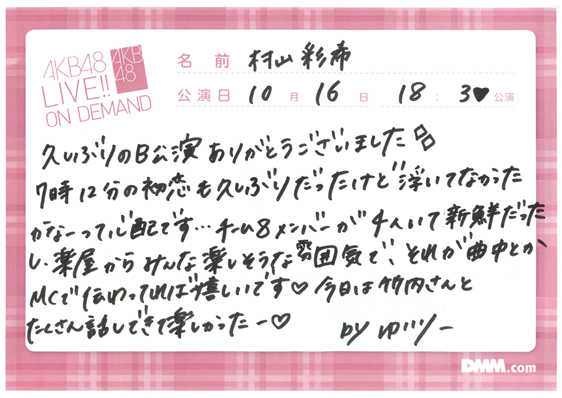 AKB48
LIVE!!
ON DEMAND
AKB
48
名 前 村山彩希
公演日 10 月 16 日 18 : 30 公演
久しぶりのB公演ありがとうございました
7時12分の初恋も久しぶりだったけど浮いてなかった
かなーって心配です…チーム8メンバーが4人いて新鮮だった
し、楽屋からみんな楽しそうな雰囲気で、それが曲中とか、
MCで伝わってれば嬉しいです♡ 今日は竹内さんと
たくさん話しできて楽しかったー♡ by ゆいりー
DMM.com